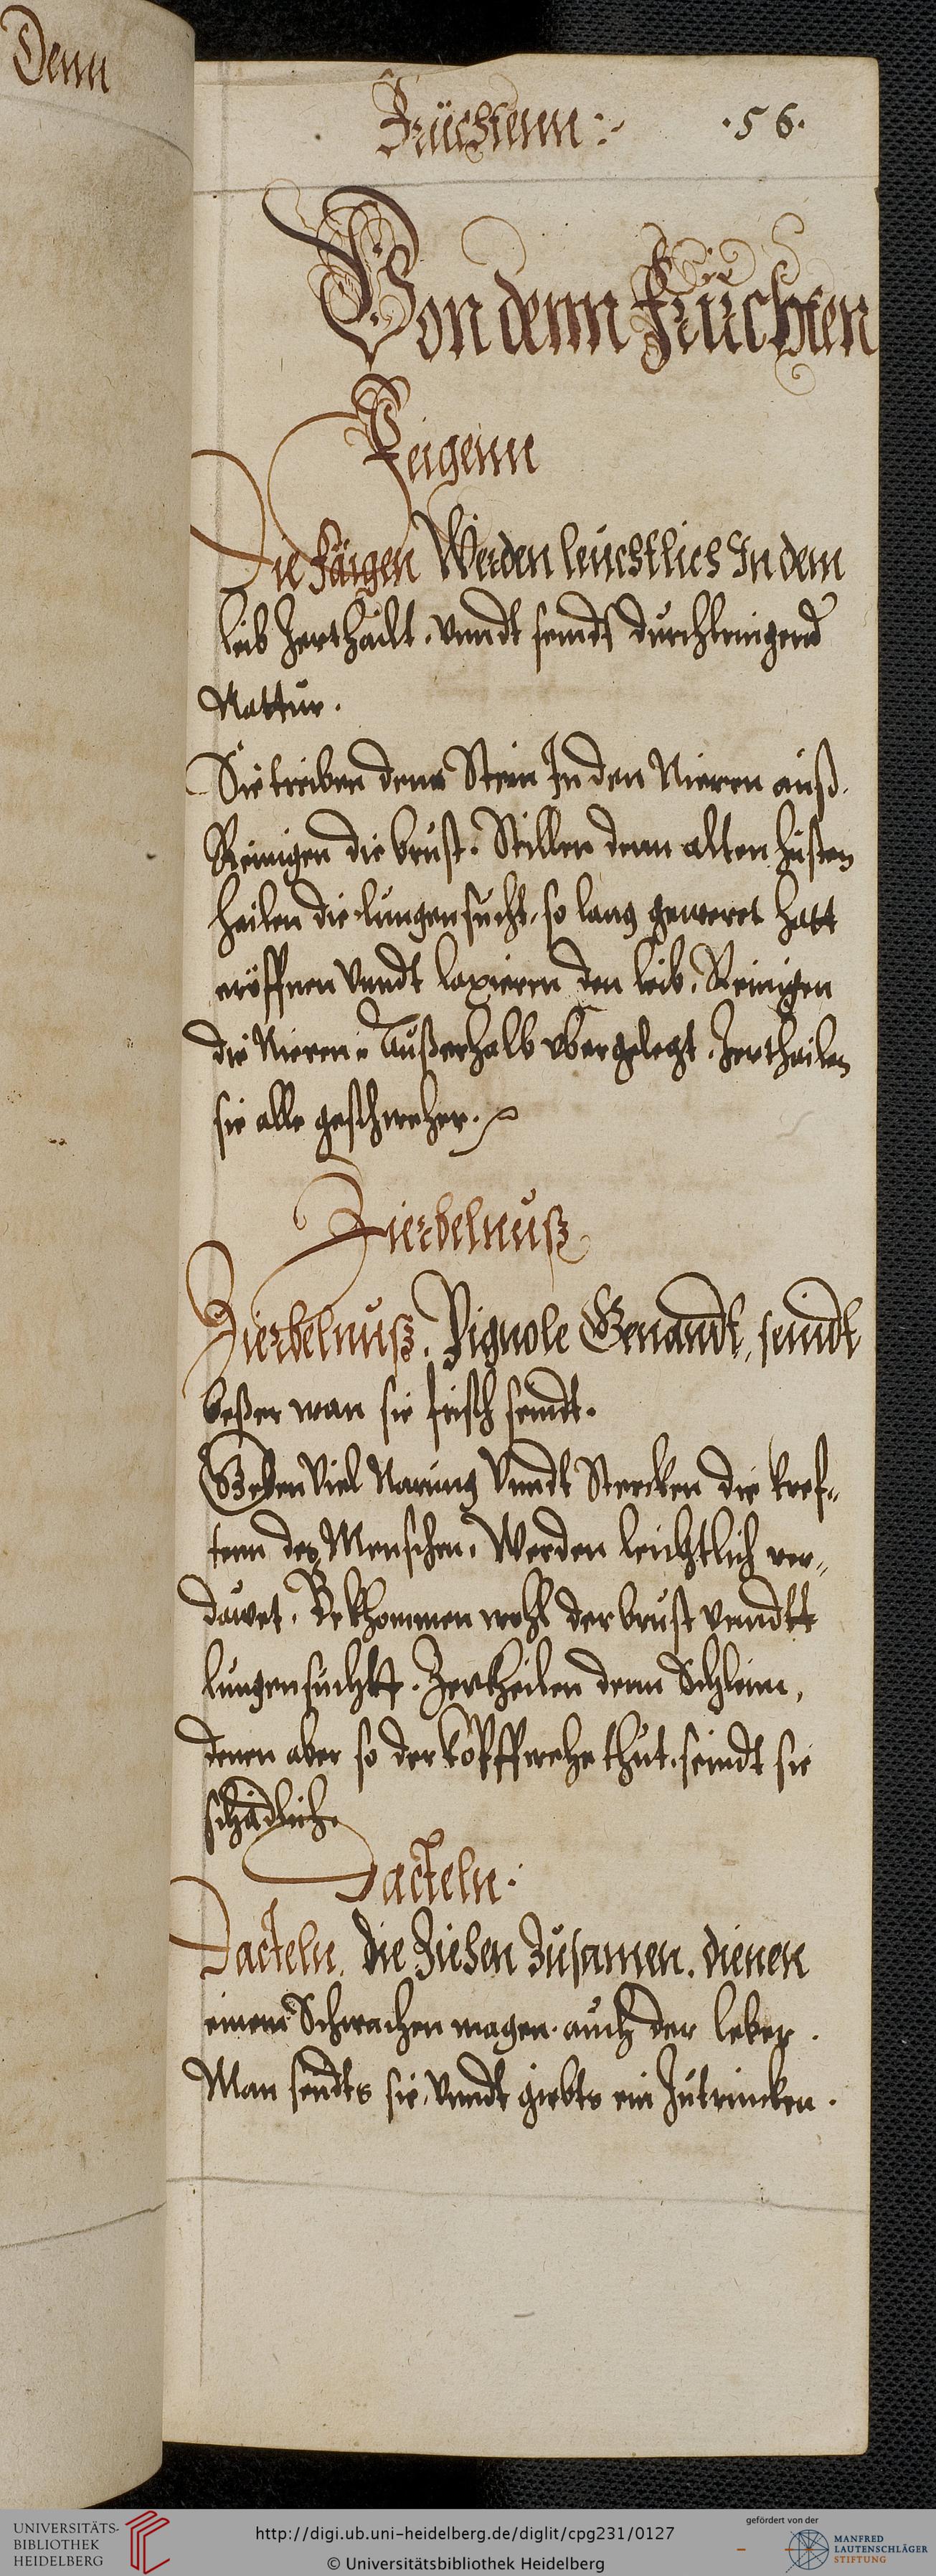 Denn
Früchtenn :~ .56.
Von denn Früchten
Feigenn
Die Faigen Werden leüchtlich In dem
leib Zerthailt. Vnndt seindt durchtringend
Nattur.
Sie treiben denn Stein In den Nieren auß.
Reinigen die brust. Stillen denn alten husten
heilen die lungensucht, so lang geweret hatt
eröffnen Vnndt laxieren den leib. Reinigen
die Nieren. Außerhalb vbergelegt. Zertheilen
sie alle geschweher.
Zierbelnuß
Zierbelnuß. Pignole Genandt, seindt
beßer wan sie frisch seindt.
Geben Viel Narung Vnndt Stercken die kref„
tenn des Menschen. Werden leichtlich ver„
dawet. Bekhommen wohl der brust vnndtt
lungensucht. Zertheilen denn Schleim,
denen aber so der kopff wehe thut. seindt sie
schädlich.
Dacteln.
Dacteln. die Ziehen Zusamen. dienen
einem Schwachen magen. auch der leber.
Man seudts sie, Vnndt giebts ein Zutrincken.
UNIVERSITÄTS-
BIBLIOTHEK
HEIDELBERG
http://digi.ub.uni-heidelberg.de/diglit/cpg231/0127
© Universitätsbibliothek Heidelberg
gefördert von der
MANFRED
LAUTENSCHLÄGER
STIFTUNG